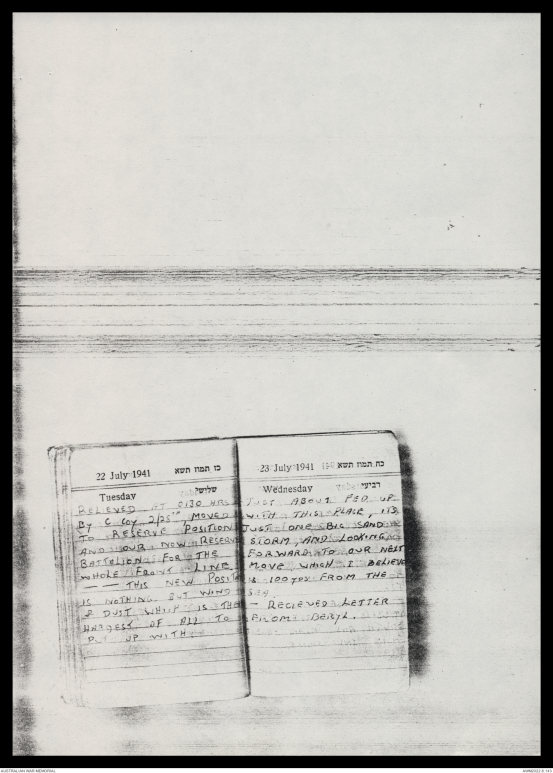 22 July 1941 כז תמוז תשא
Tuesday שלישי
RELIEVED AT 0130 HRS
BY C Coy 2/25TH, MOVED
TO RESERVE POSITION
AND OUR NOW RESERVE
BATTELION FOR THE
WHOLE FRONT LINE
— — THIS NEW POSIT
IS NOTHING BUT WIND
& DUST WHICH IS THE
HARDEST OF ALL TO
PUT UP WITH
23 July 1941 כח תמוז תשא
Wednesday רביעי
JUST ABOUT FED UP
WITH THIS PLACE, ITS
JUST ONE BIG SAND
STORM AND LOOKING
FORWARD TO OUR NEXT
MOVE WHICH I BELIEVE
IS 100 YDS FROM THE
SEA.
— RECIEVED LETTER
FROM BERYL.
AUSTRALIAN WAR MEMORIAL